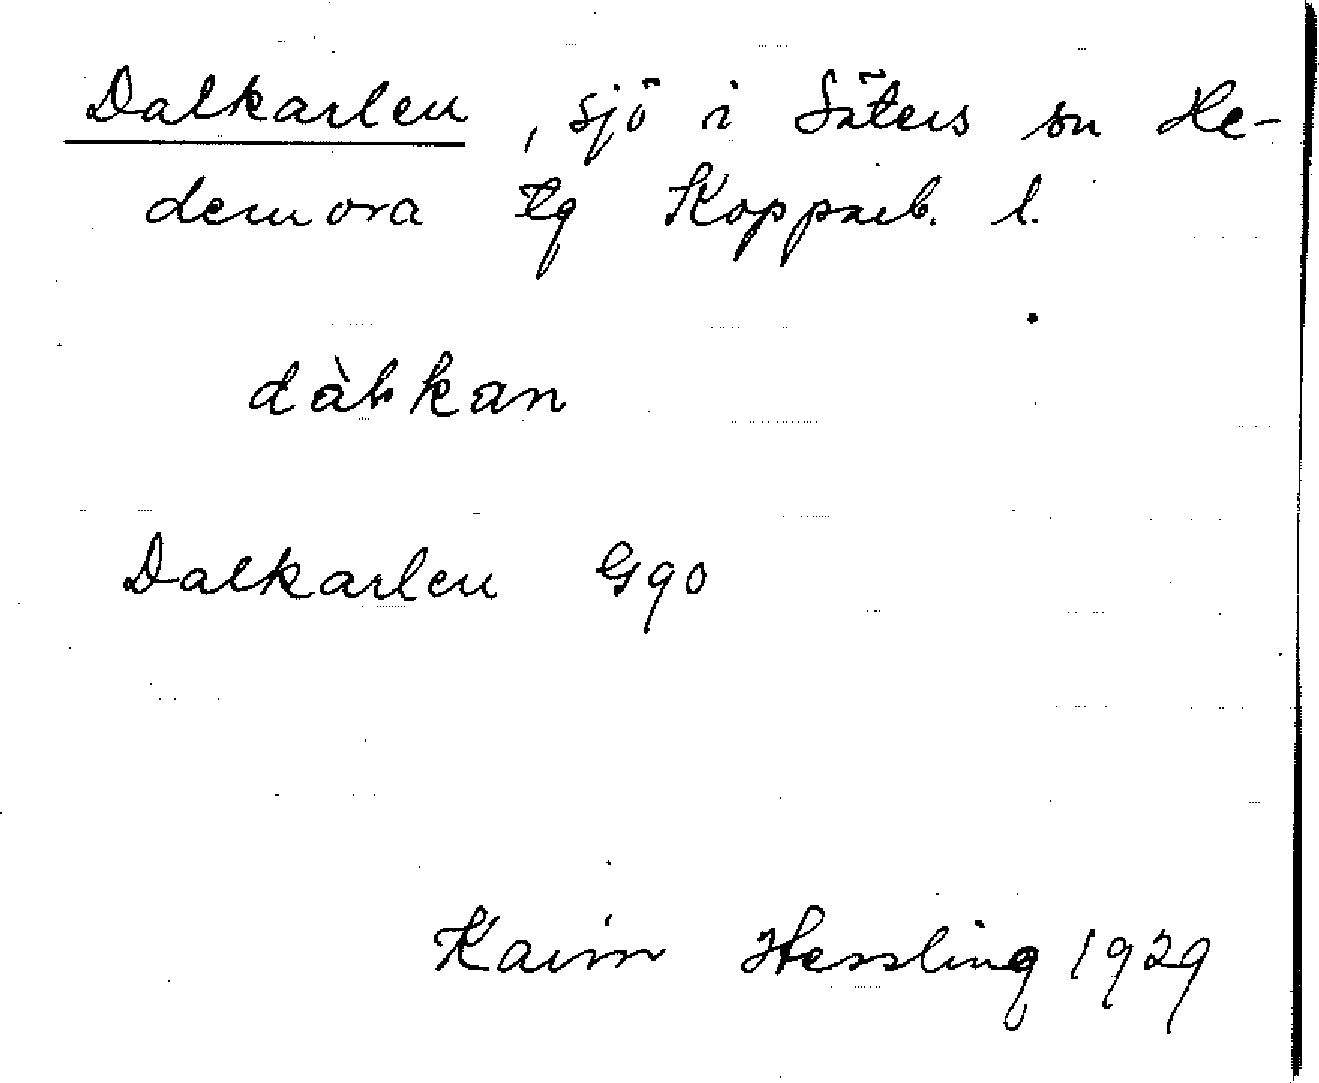 Dalkarlen, sjö i Säters sn He-
demora tg Kopparb. l.
dàkkan
Dalkarlen Gqo
Karin Hessling 1929